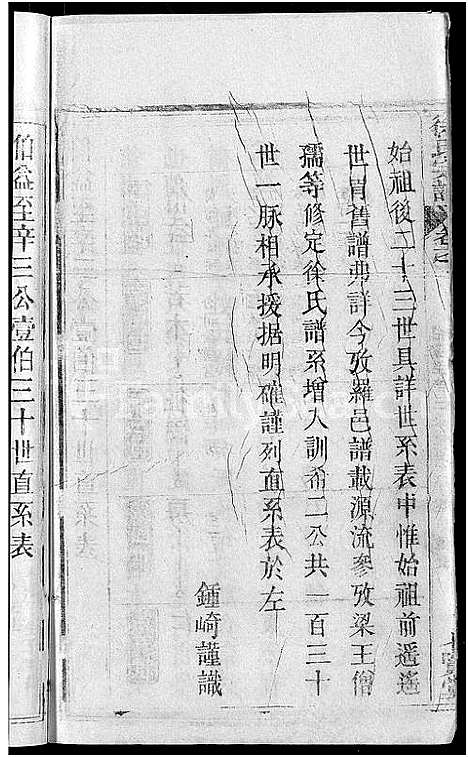 始祖後二十三世具詳世系表中惟始祖前遥遥
世冑舊譜弗詳今攷羅邑譜載源流參攷梁王僧
孺等修定徐氏譜系增入訓希二公共一百三十
世一脉相承援据明確謹列直系表於左
鍾崎謹識
伯益至梓三公壹伯三十世直系表